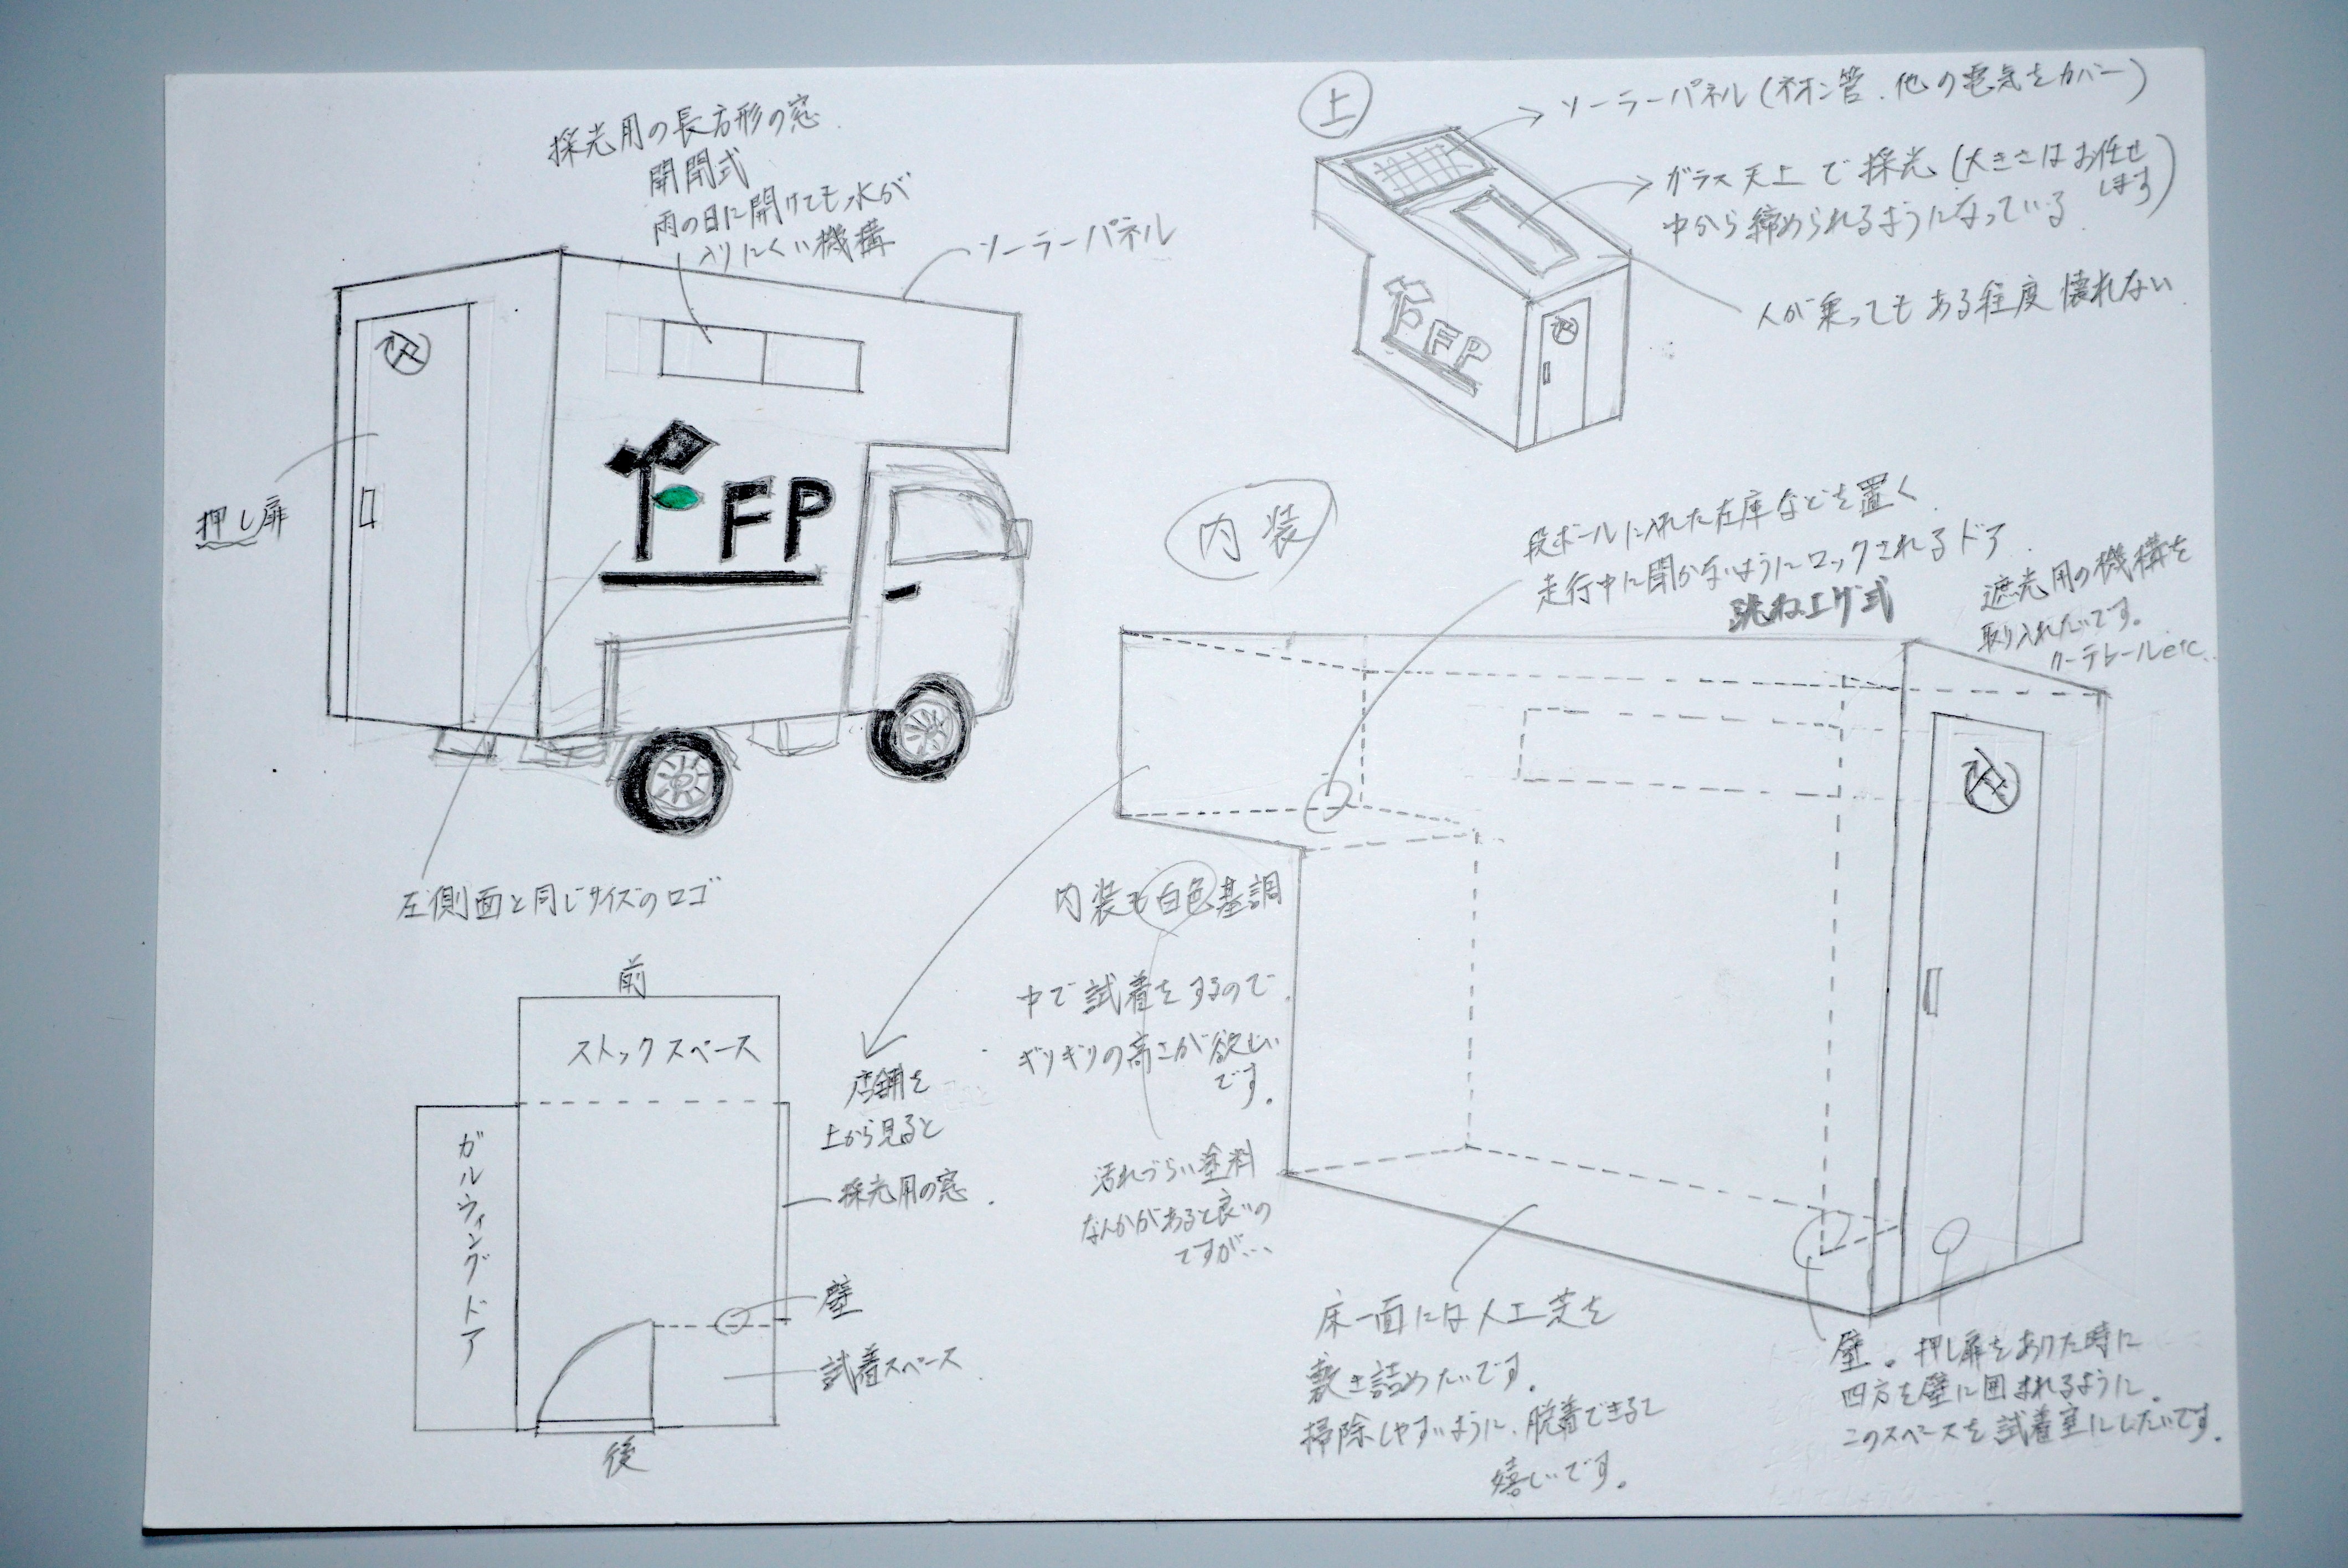 採光用の長方形の窓
開閉式
雨の日に開けても水が
入りにくい機構
ソーラーパネル
押し扉
FP
左側面と同じサイズのロゴ
上
ソーラーパネル(ネオン管、他の電気をカバー)
ガラス天上で採光(大きさはお任せ
します)
中から締められるようになっている
人が乗ってもある程度壊れない
FP
内装
段ボールに入れた在庫などを置く
走行中に開かないようにロックされるドア
跳ね上げ式
遮光用の機構を
取り入れたいです。
カーテレールetc..
内装も白色基調
中で試着をするので、
ギリギリの高さが欲しい
です。
汚れづらい塗料
なんかがあると良いの
ですが…
前
ストックスペース
ガルウィングドア
後
店舗を
上から見ると
採光用の窓.
壁
試着スペース
床一面には人工芝を
敷き詰めたいです。
掃除しやすいように、脱着できると
嬉しいです。
壁。押し扉をあけた時に
四方を壁に囲まれるように。
このスペースを試着室にしたいです。